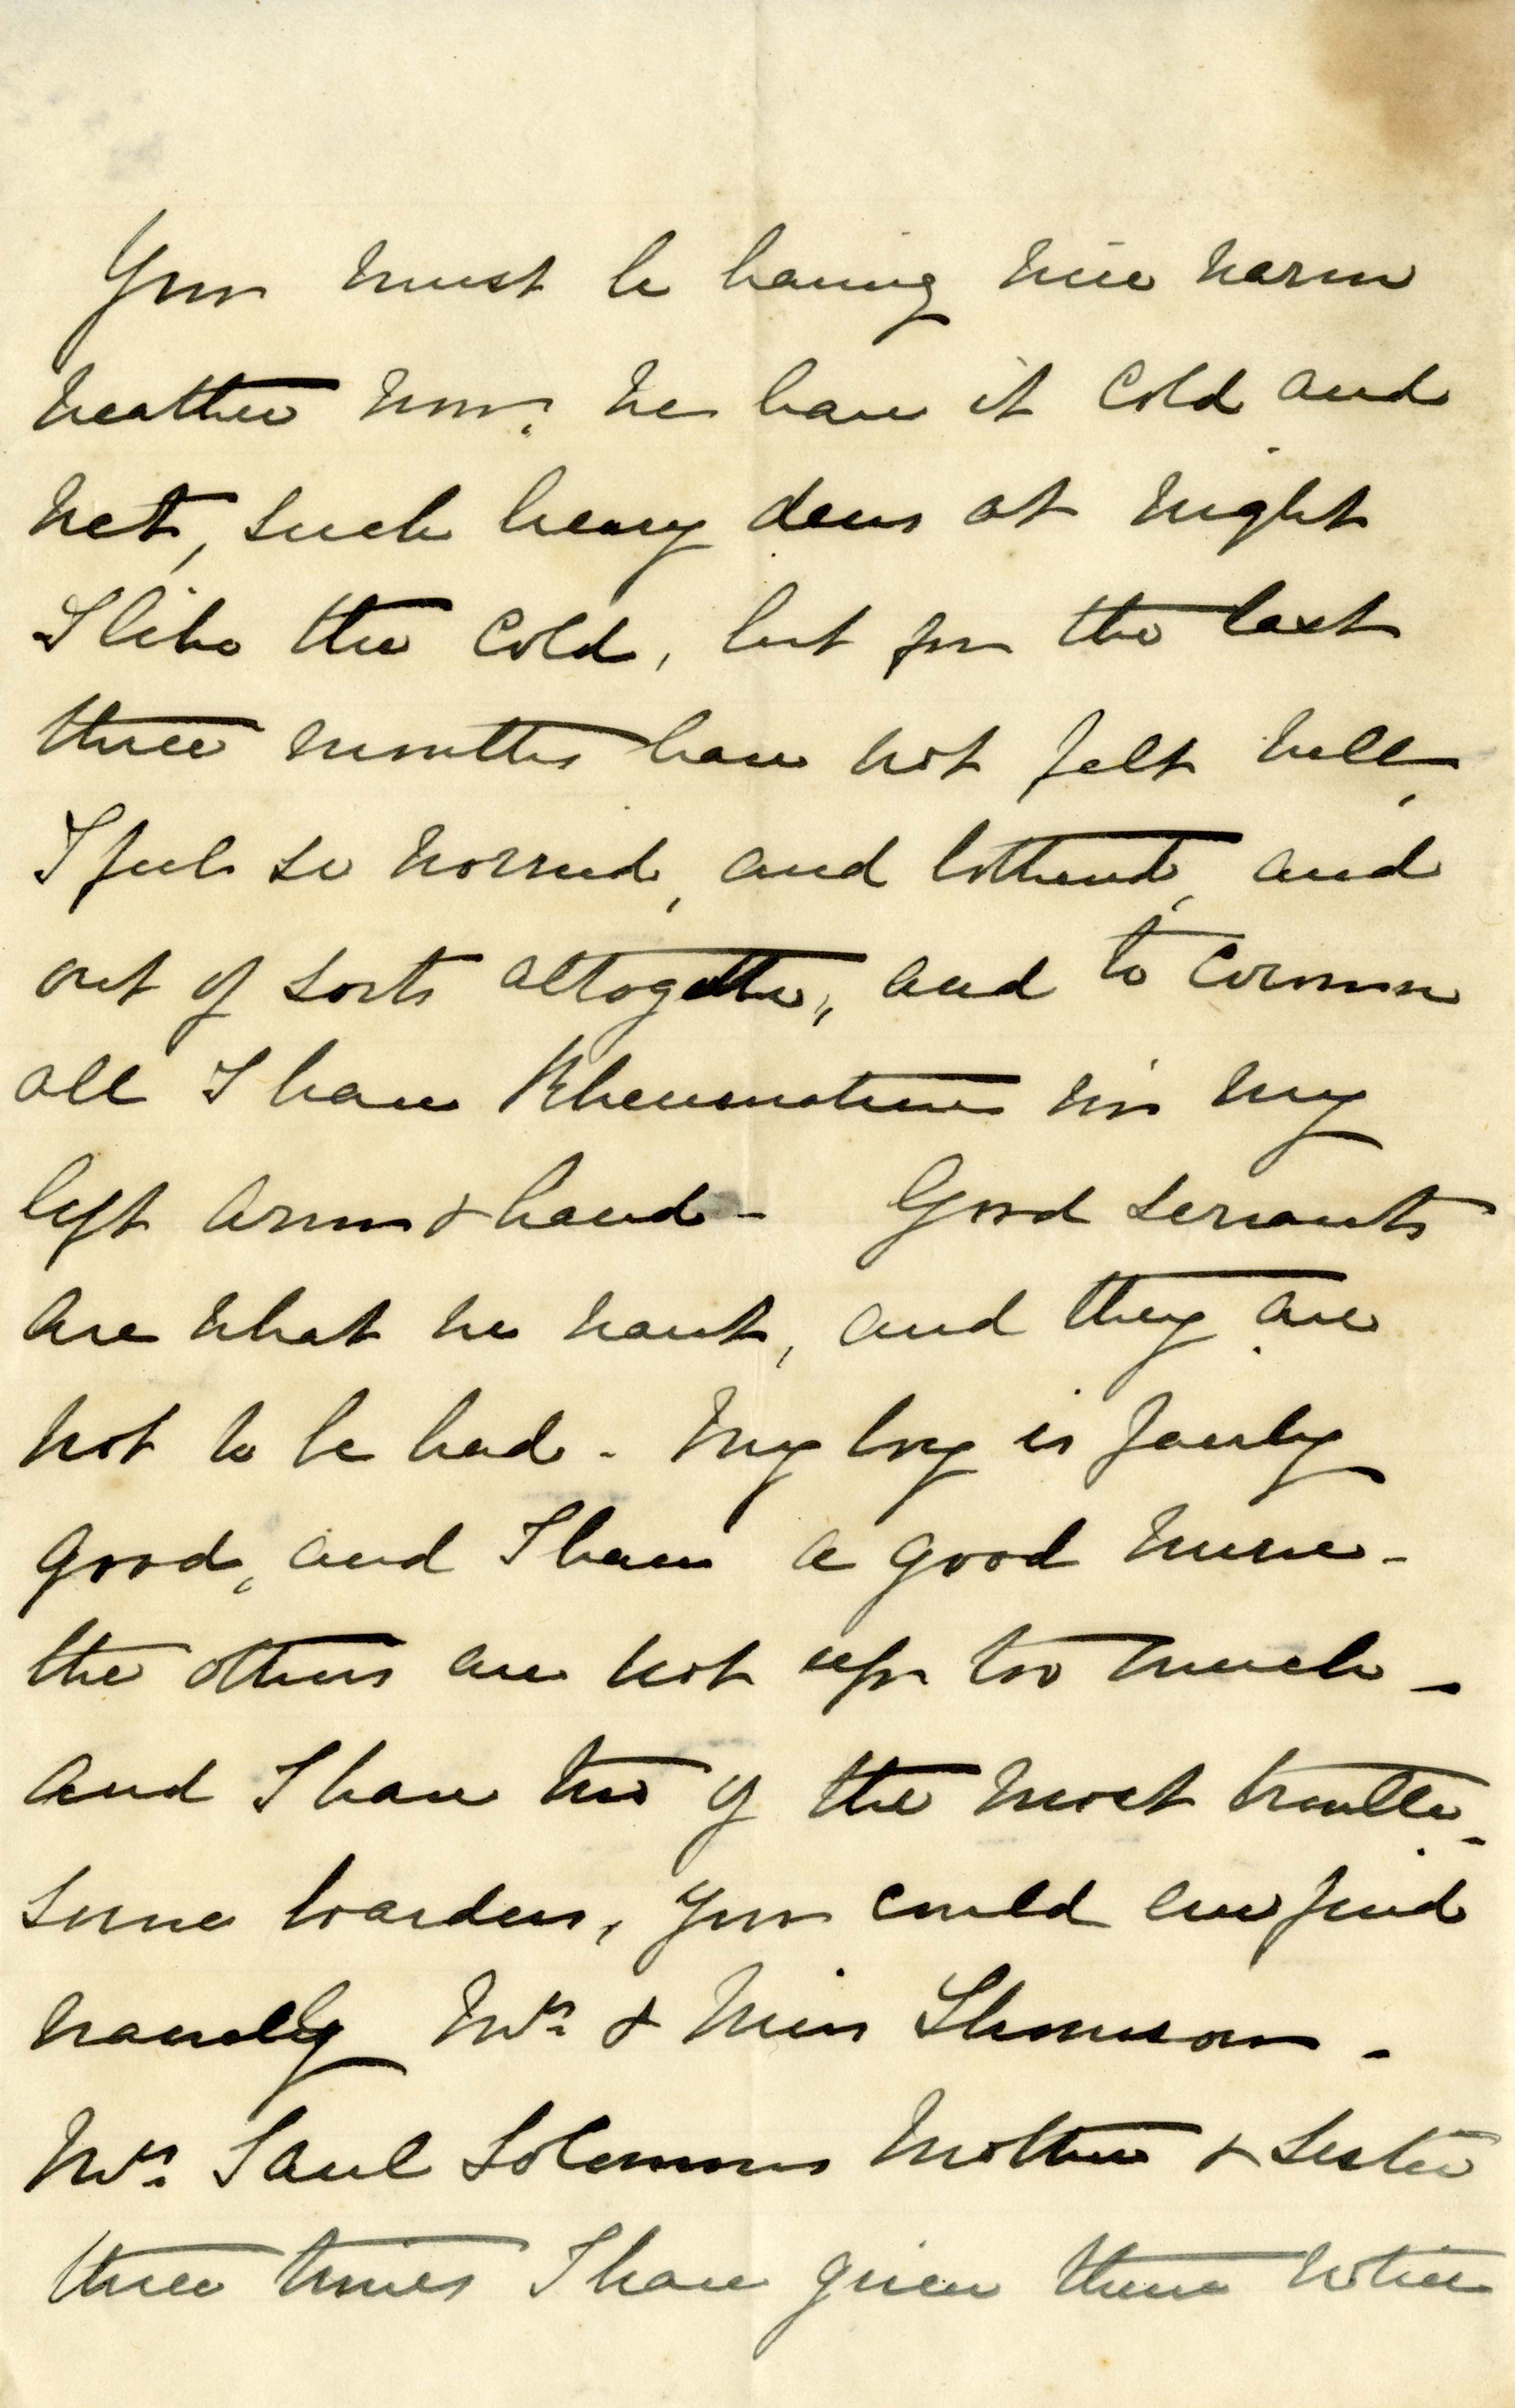 You must be having nice warm
weather now, we have it cold and
wet, such heavy dews at night
I like the cold, but for the last
three months have not felt well,
I feel so worried, and bothered, and
out of sorts altogether, and to crown
all I have Rheumatism in my
left arm & hand - Good servants
are what we want, and they are
not to be had - My boy is fairly
good, and I have a good nurse -
the others are not up too much -
and I have two of the most trouble-
some boarders, you could ever find
namely Mrs. & Miss Thomson -
Mrs. Saul Solomons Mother & Sister
three times I have given them notice